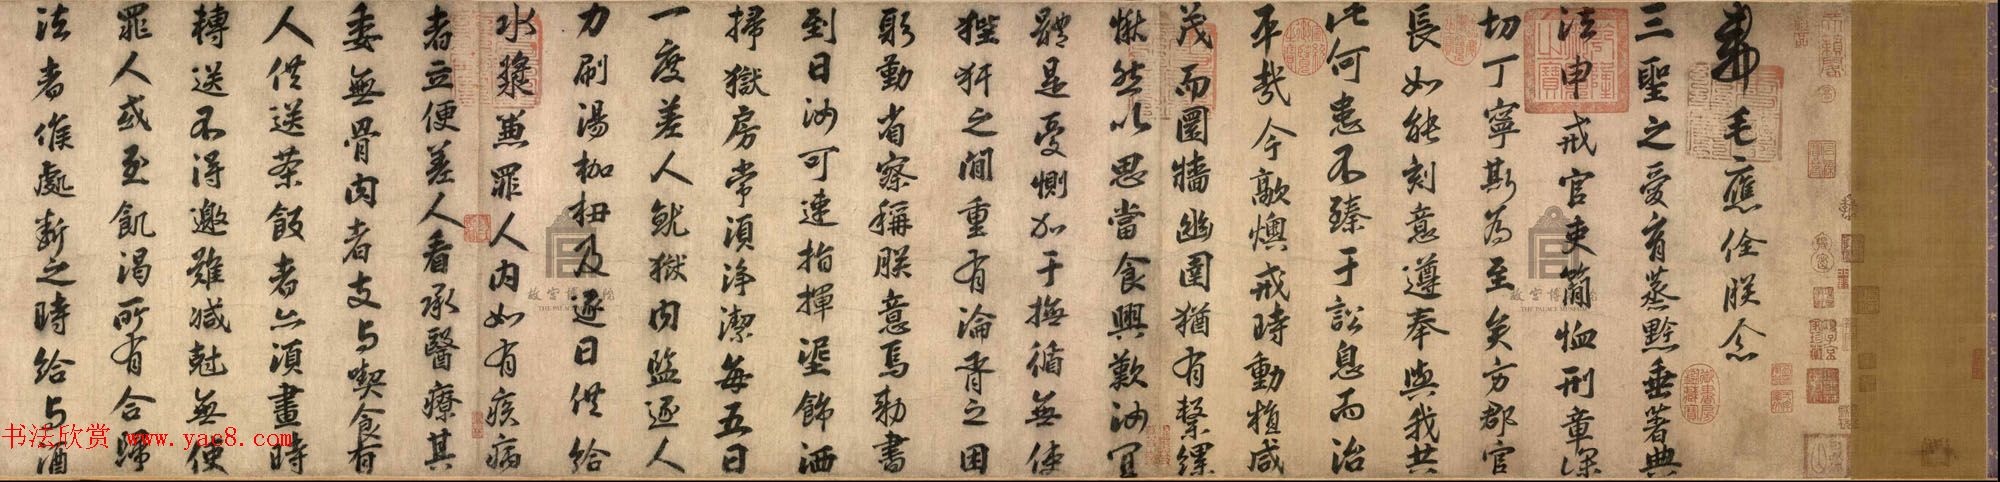 敕毛應佺朕念
三聖之愛育蒸黔垂著典
法申戒官吏簡恤刑章深
切丁寧斯為至矣方郡官
長如能刻意遵奉與我共
此何患不臻于訟息而治
平哉今歊燠戒時動植咸
茂而圜牆幽圄猶有縶縲
愀然以思當食興歎汝宜
體是憂惻加于撫循無使
狴犴之間重有淪胥之困
躬勤省察稱朕意焉勑書
到日汝可速指揮渥飾洒
掃獄房常須浄潔每五日
一度差人就獄內監逐人
力刷湯枷杻及逐日供給
水漿兼罪人內如有疾病
者立便差人看承醫療其
委無骨肉者支与喫食有
人供送茶飯者亦須畫時
轉送不得邀難減尅無使
罪人或至飢渴所有合歸
法者候處斷之時給与酒
故宮博物院
THE PALACE MUSEUM
故宮博物院
THE PALACE MUSEUM
书法欣赏 www.yac8.com